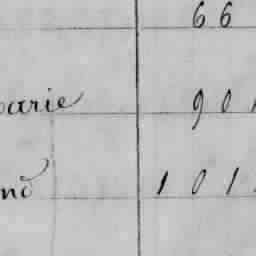 66
arie 90
nd 101